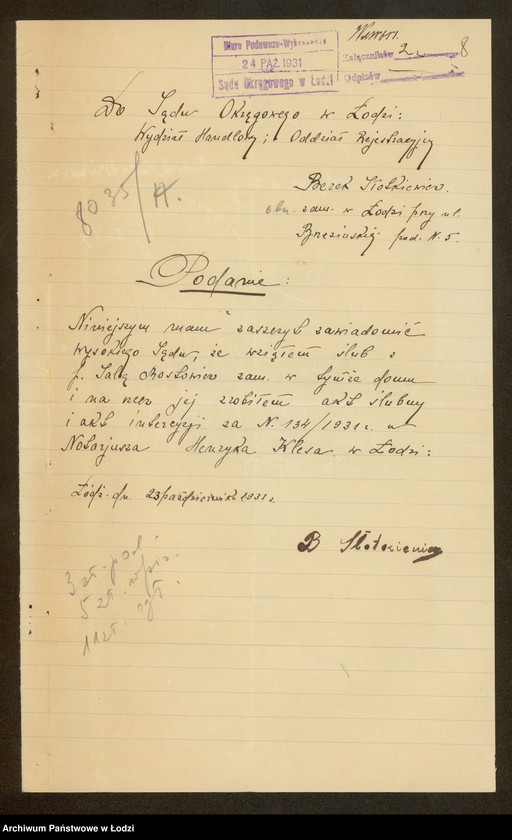 Biuro Podawczo-Wykonawcze
24 PAŹ. 1931
Sądu Okręgowego w Łodzi
Załączników 2
Odpisów
8
Do Sądu Okręgowego w Łodzi:
Wydział Handlowy; Oddział Rejestracyjny
8035/H.
Berek
zam. w Łodzi przy ul.
Brzezińskiej pod N. 5.
Podanie:
Niniejszym mam zaszczyt zawiadomić
Wysokiego Sądu, że wziąłem ślub z
zam. w tymże domu
i na rzecz jej zrobiłem akt ślubny
i akt intercyzji za N. 134/1931 r. u
Notarjusza Henryka Klesa w Łodzi:
Łódź. dn. 23 października 1931 r.
B
3 zł. pod.
5 zł. wpis.
11 zł. ogł.
Archiwum Państwowe w Łodzi